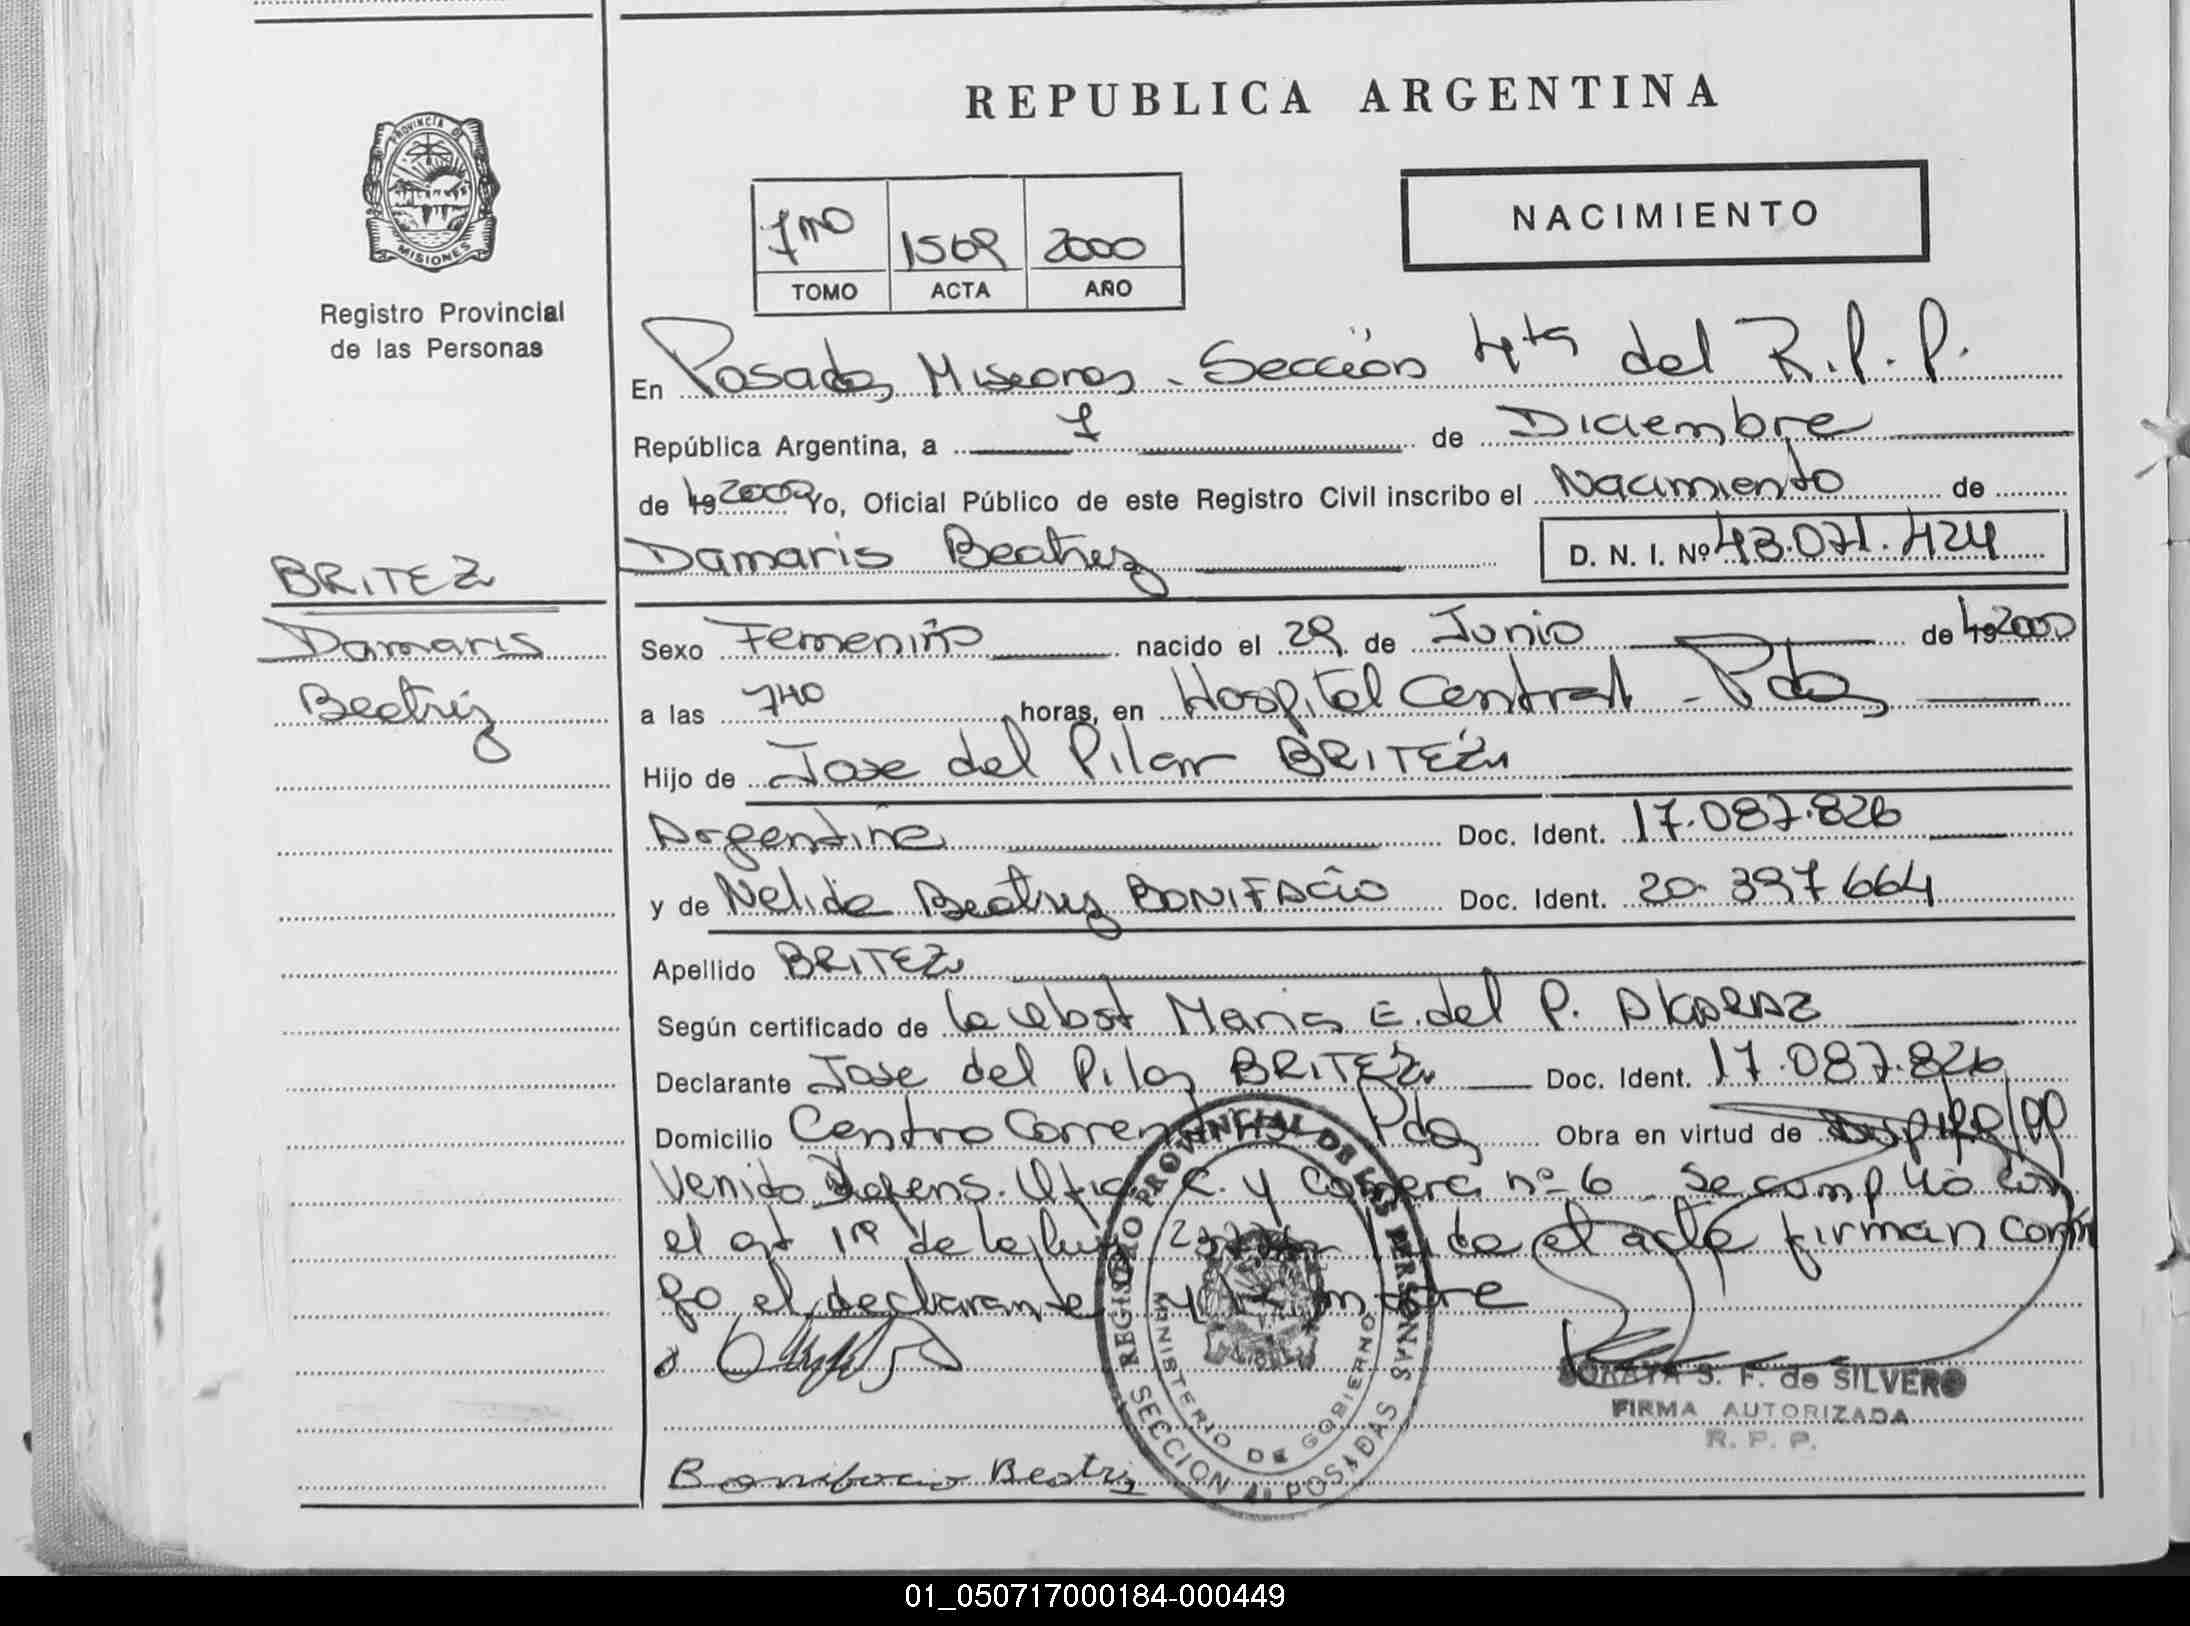 REPUBLICA ARGENTINA
PROVINCIA DE
MISIONES
Registro Provincial
de las Personas
NACIMIENTO
7mo 1569 2000
TOMO ACTA AÑO
En Posadas, Misiones - Sección 4ta del R.P.P.
República Argentina, a 7 de Diciembre
de 19 2000 Yo, Oficial Público de este Registro Civil inscribo el Nacimiento de
Damaris Beatriz D. N. I. Nº 43.071.424
BRITEZ
Damaris
Beatriz
Sexo Femenino nacido el 29 de Junio de 19 2000
a las 740 horas, en Hospital Central - Pdas
Hijo de Jose del Pilar BRITEZ
Argentina Doc. Ident. 17.087.826
y de Nelida Beatriz BONIFACIO Doc. Ident. 20.397.664
Apellido BRITEZ
Según certificado de la obst Maria E. del P. Alcaraz
Declarante Jose del Pilar BRITEZ Doc. Ident. 17.087.826
Domicilio Centro Pdas Obra en virtud de
Venido C. y nº 6 Se cumplió con
el art 1º de la el acta firman conmi
go el declarante y la madre
REGISTRO PROVINCIAL DE LAS PERSONAS
MINISTERIO DE GOBIERNO
SECCION 4a POSADAS
SORAYA S. F. de SILVERO
FIRMA AUTORIZADA
R. P. P.
Bonifacio Beatriz
01_050717000184-000449